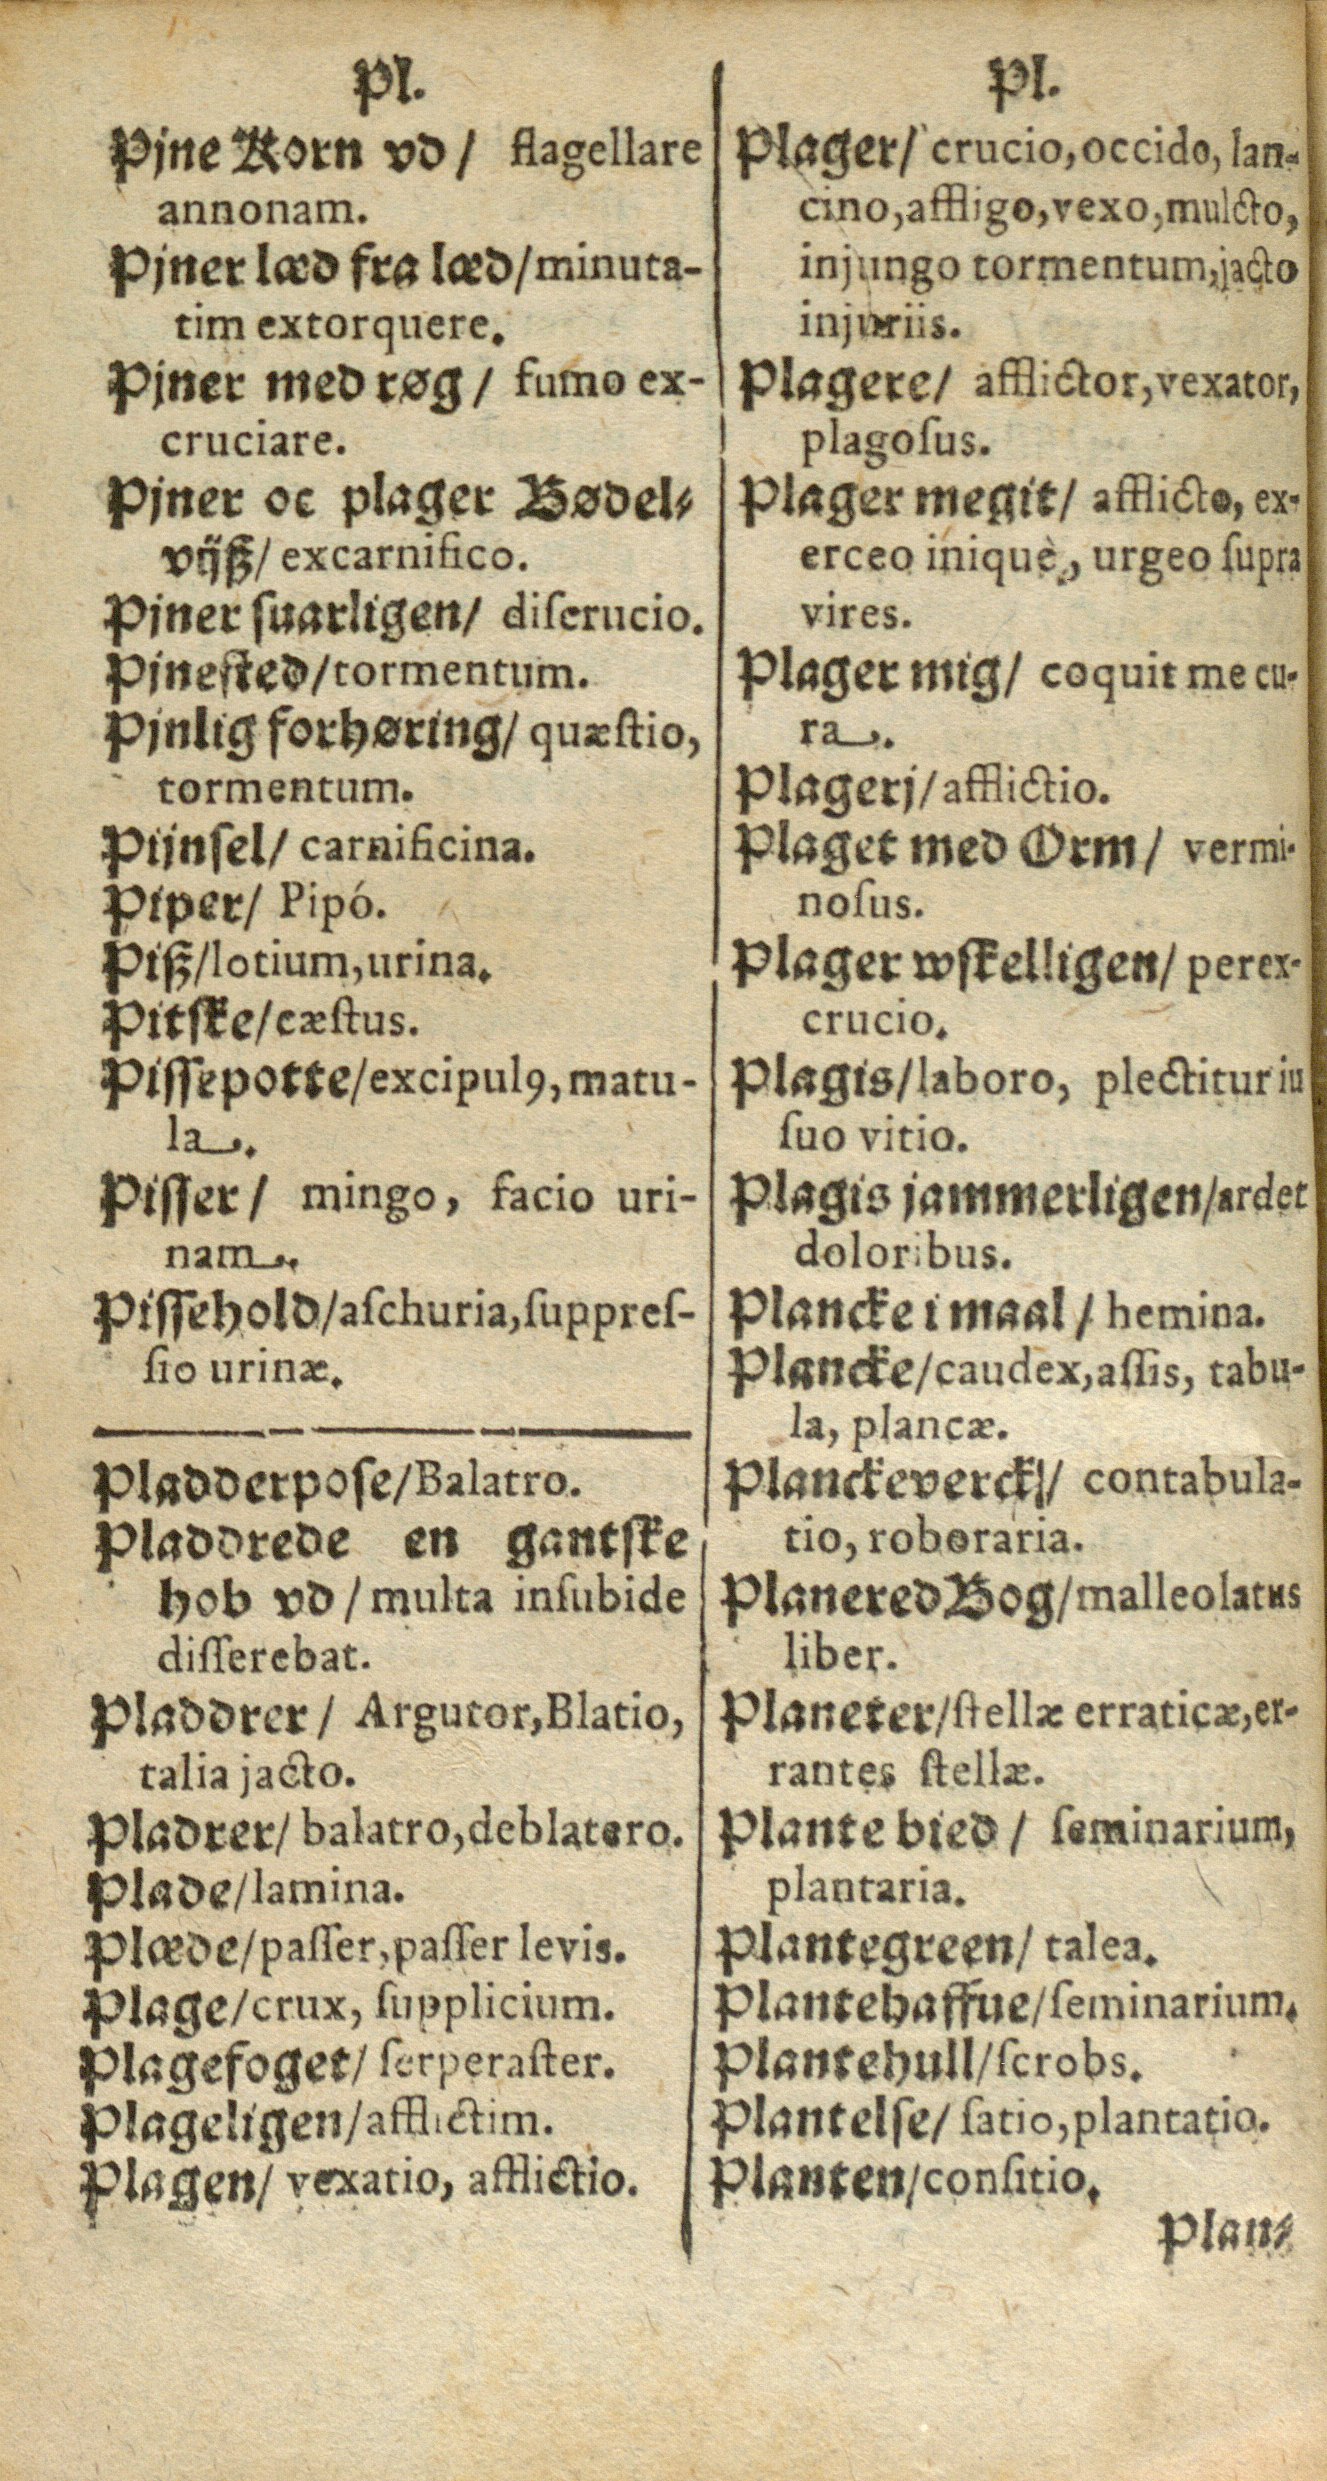 Pl.
Pjne Korn vd / flagellare
annonam.
Pjner læd fra læd/minuta-
tim extorquere.
Pjner med røg / fumo ex-
cruciare.
Pjner oc plager Bødel-
vijß/ excarnifico.
Pjner ſuarligen/ diſcrucio.
Pjneſted/tormentum.
Pjnlig forhøring/ quæſtio,
tormentum.
Pijnſel/ carnificina.
Piper/ Pipó.
Piß/lotium,urina.
Pitſke/cæſtus.
Piſſepotte/excipulꝰ,matu-
la.
Piſſer / mingo, facio uri-
nam.
Piſſehold/aſchuria,ſuppreſ-
ſio urinæ.
Pladderpoſe/Balatro.
Pladdrede en gantſke
hob vd / multa inſubide
diſſerebat.
Pladdrer / Argutor,Blatio,
talia jacto.
Pladrer/ balatro,deblatero.
Plade/lamina.
Plæde/paſſer,paſſer levis.
Plage/crux, ſupplicium.
Plagefoget/ ſerperaſter.
Plageligen/afflictim.
Plagen/ vexatio, afflictio.
Pl.
Plager/ crucio,occido, lan-
cino,affligo,vexo,mulcto,
injungo tormentum,jacto
injuriis.
Plagere/ afflictor,vexator,
plagoſus.
Plager megit/ afflicto, ex-
erceo iniquè, urgeo ſupra
vires.
Plager mig/ coquit me cu-
ra.
Plagerj/afflictio.
Plaget med Orm/ vermi-
noſus.
Plager wſkelligen/ perex-
crucio.
Plagis/laboro, plectitur iu
ſuo vitio.
Plagis jammerligen/ardet
doloribus.
Plancke i maal / hemina.
Plancke/caudex,aſſis, tabu-
la, plancæ.
Planckeverck/ contabula-
tio, roboraria.
Planered Bog/malleolatus
liber.
Planeter/ſtellæ erraticæ,er-
rantes ſtellæ.
Plante bied / ſeminarium,
plantaria.
Plantegreen/ talea.
Plantehaffue/ſeminarium.
Plantehull/ſcrobs.
Plantelſe/ ſatio,plantatio.
Planten/conſitio.
Plan-